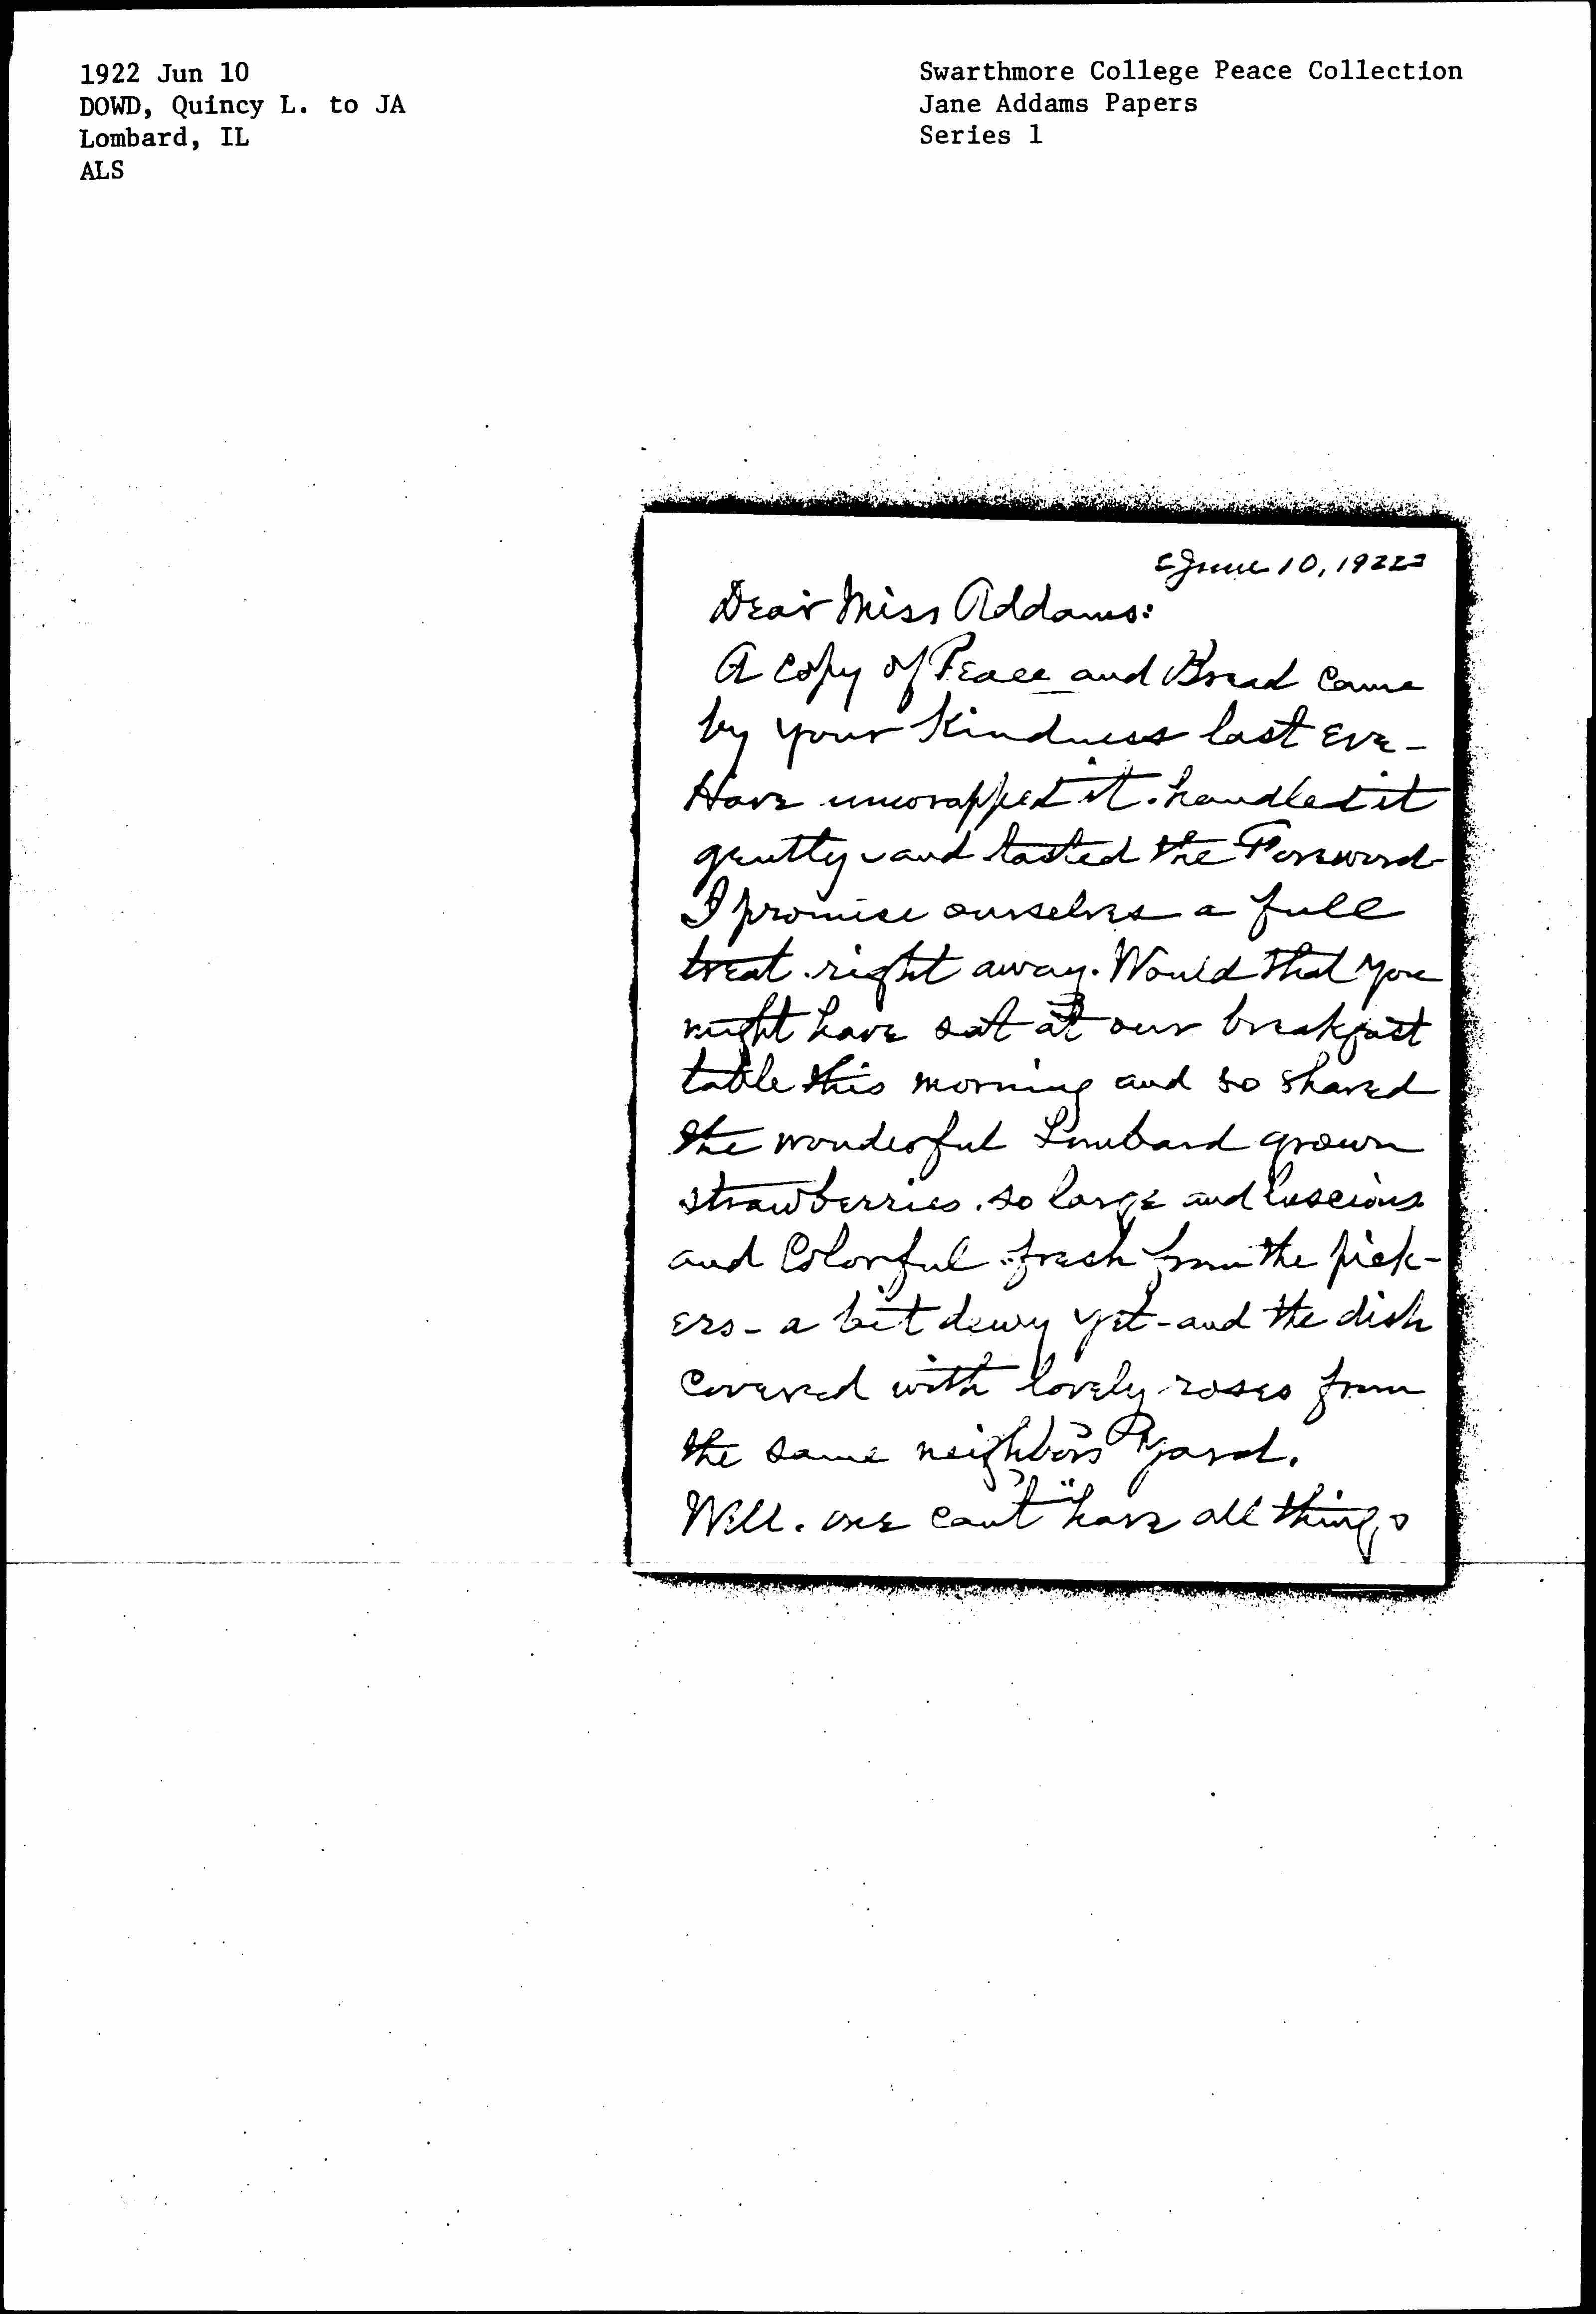 1922 Jun 10
DOWD, Quincy L. to JA
Lombard, IL
ALS
Swarthmore College Peace Collection
Jane Addams Papers
Series 1
[June 10, 1922]
Dear Miss Addams:
A copy of Peace and Bread came
by your kindness last eve-
Have unwrapped it. handled it
gently and tasted the Foreword-
I promise ourselves a full
treat right away. Would that you
might have sat at our breakfast
table this morning and so shared
the wonderful Lombard grown
strawberries. so large and luscious
and colorful. fresh from the pick-
ers- a bit dewy yet- and the dish
covered with lovely roses from
the same neighbor's yard.
Well. one can't "have all things